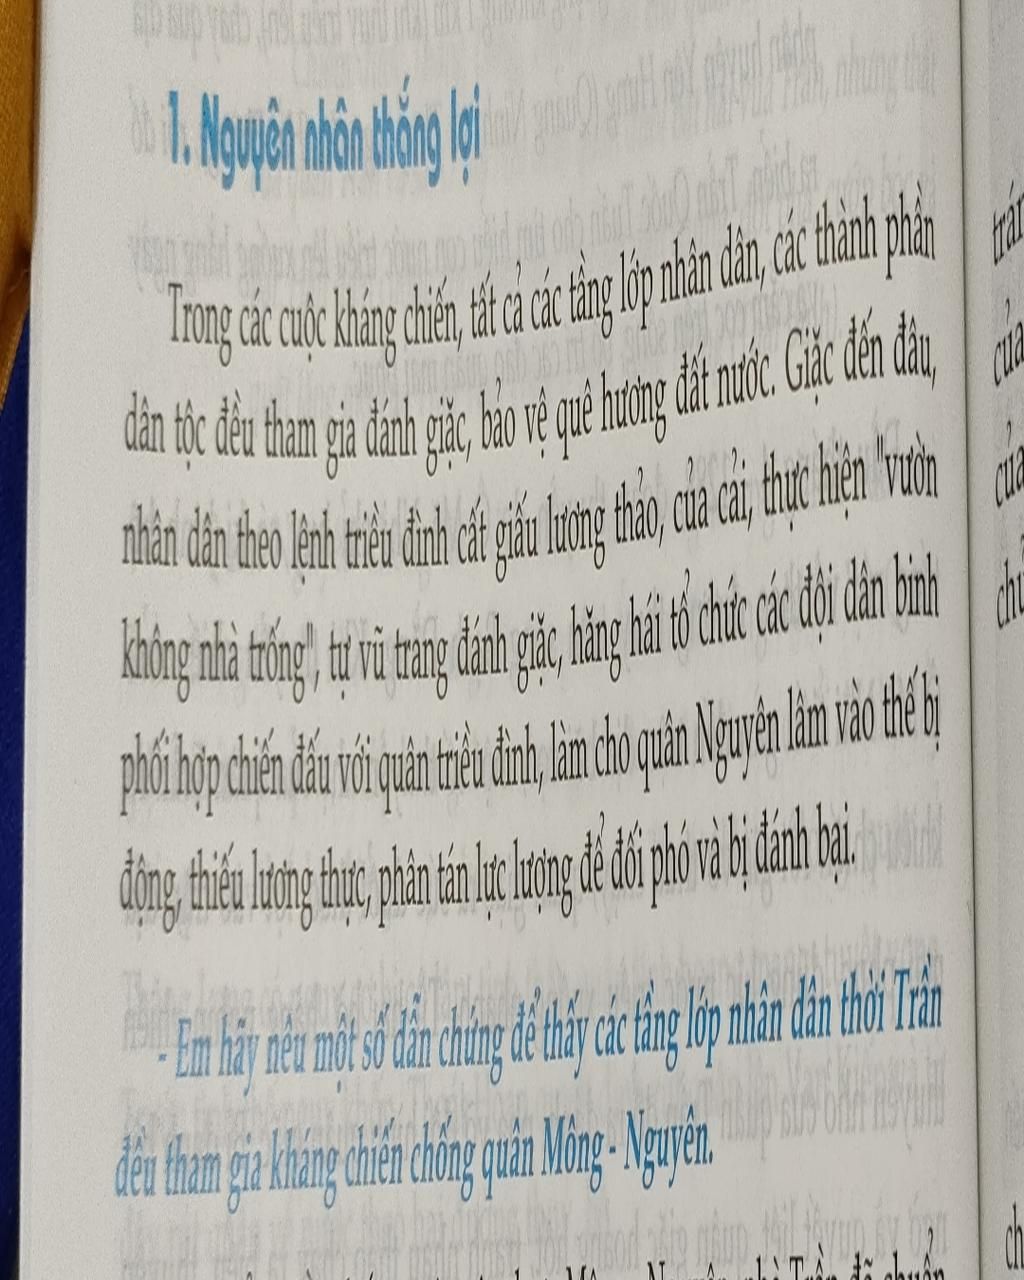 1. Nguyên nhân thắng lợi
Trong các cuộc kháng chiến, tất cả các tầng lớp nhân dân, các thành phần
dân tộc đều tham gia đánh giặc, bảo vệ quê hương đất nước. Giặc đến đâu,
nhân dân theo lệnh triều đình cất giấu lương thảo, của cải, thực hiện "vườn
không nhà trống", tự vũ trang đánh giặc, hăng hái tổ chức các đội dân binh
phối hợp chiến đấu với quân triều đình, làm cho quân Nguyên lâm vào thế bị
động, thiếu lương thực, phân tán lực lượng để đối phó và bị đánh bại.
- Em hãy nêu một số dẫn chứng để thấy các tầng lớp nhân dân thời Trần
đều tham gia kháng chiến chống quân Mông - Nguyên.
Mông - Nguyên nhà Trần đã chuẩn
của
của